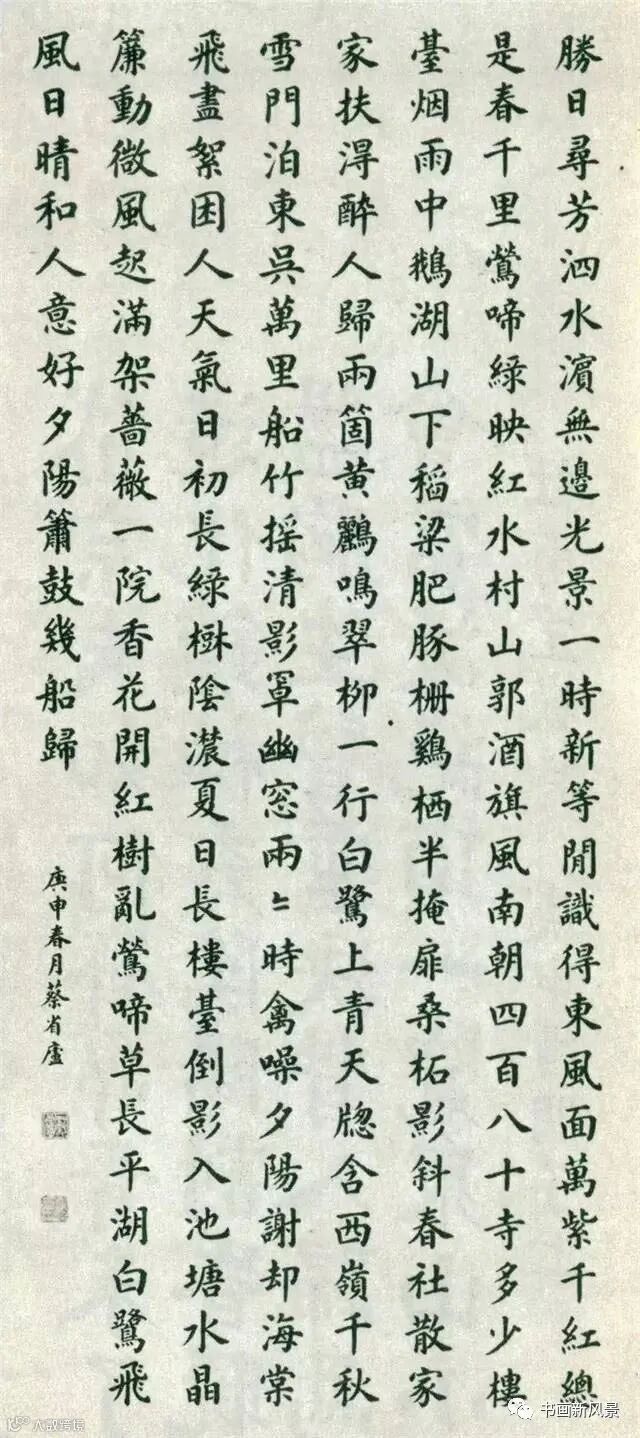 勝日尋芳泗水濱無邊光景一時新等閒識得東風面萬紫千紅總
是春千里鶯啼綠映紅水村山郭酒旗風南朝四百八十寺多少樓
臺烟雨中鵝湖山下稻粱肥豚柵鷄栖半掩扉桑柘影斜春社散家
家扶淂醉人歸兩箇黄鸝鳴翠柳一行白鷺上青天牕含西嶺千秋
雪門泊東吳萬里船竹摇清影罩幽窓兩〻時禽噪夕陽謝却海棠
飛盡絮困人天氣日初長綠樹陰濃夏日長樓臺倒影入池塘水晶
簾動微風起滿架薔薇一院香花開紅樹亂鶯啼草長平湖白鷺飛
風日晴和人意好夕陽簫鼓幾船歸
庚申春月蔡省廬
大数跨境
书画新风景